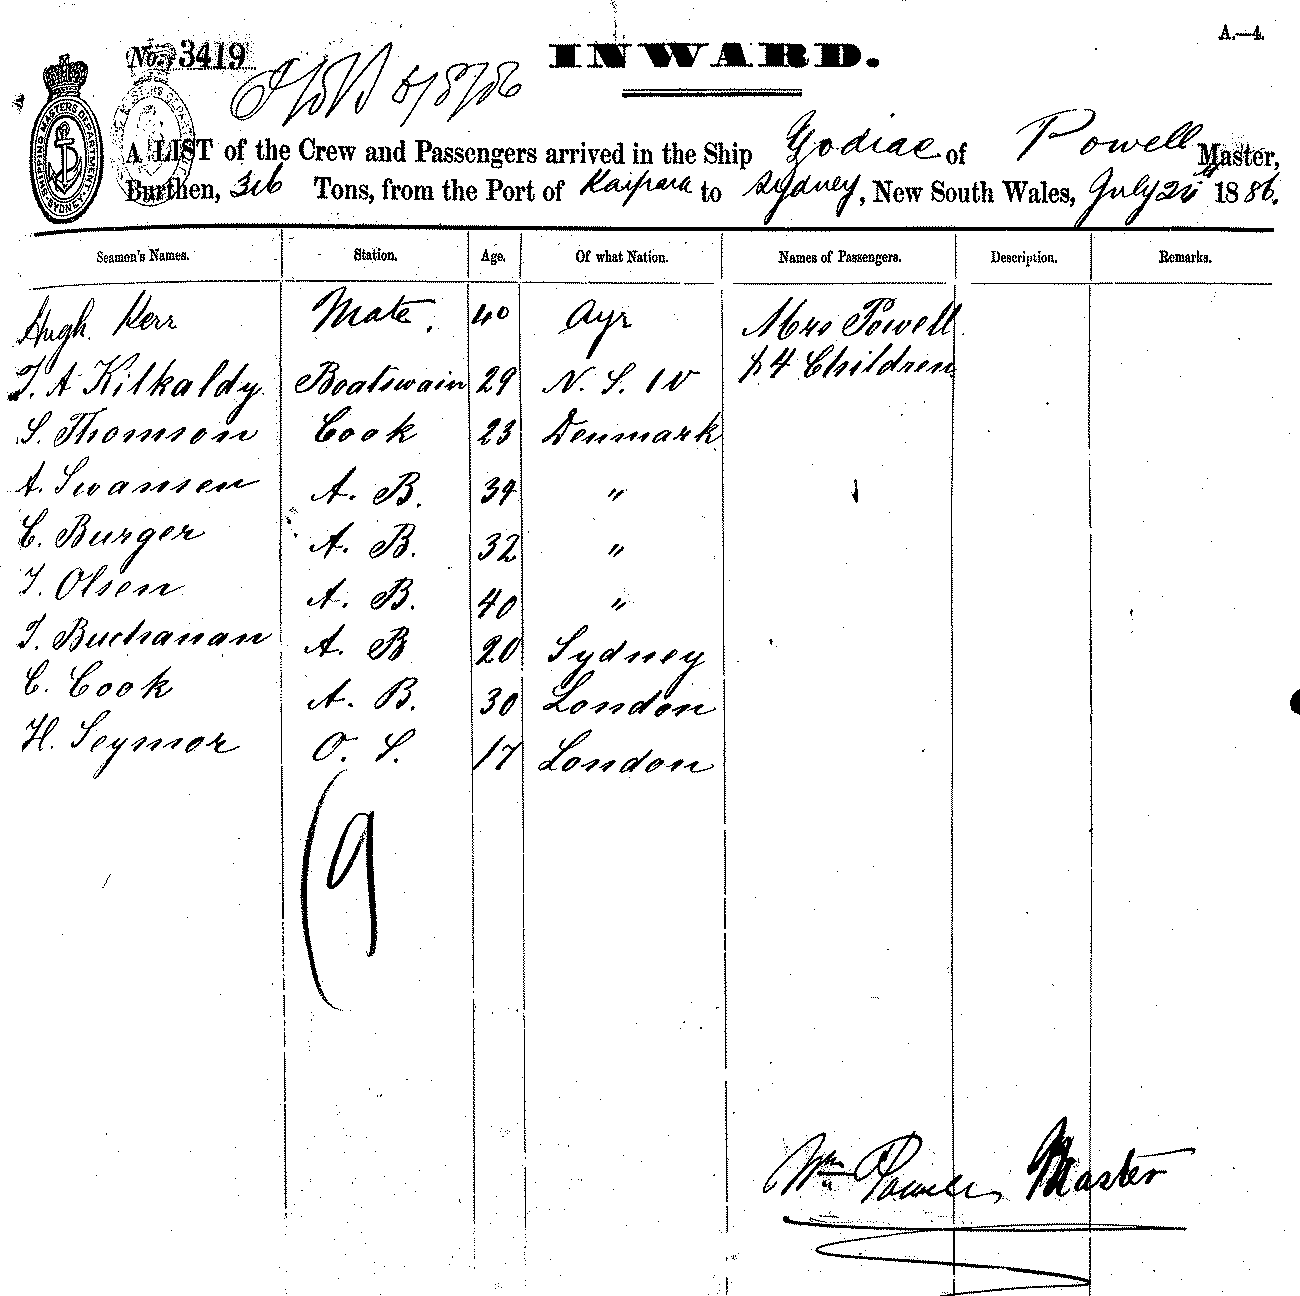 No. 3419
INWARD.
A.—4.
SHIPPING MASTER'S DEPARTMENT SYDNEY
A LIST of the Crew and Passengers arrived in the Ship Zodiac of Powell Master,
Burthen, 316 Tons, from the Port of Kaipara to Sydney, New South Wales, July 1886.
Seamen's Names. Station. Age. Of what Nation. Names of Passengers. Description. Remarks.
Hugh Kerr Mate. 40 Ayr Mrs Powell
T. A Kilkaldy Boatswain 29 N. S. W & 4 Children
S. Thomson Cook 23 Denmark
A. Swansen A. B. 34 "
C. Burger A. B. 32 "
T. Olsen A. B. 40 "
T. Buchanan A. B 20 Sydney
C. Cook A. B. 30 London
H. Seymor O. S. 17 London
(9
Wm Powell Master